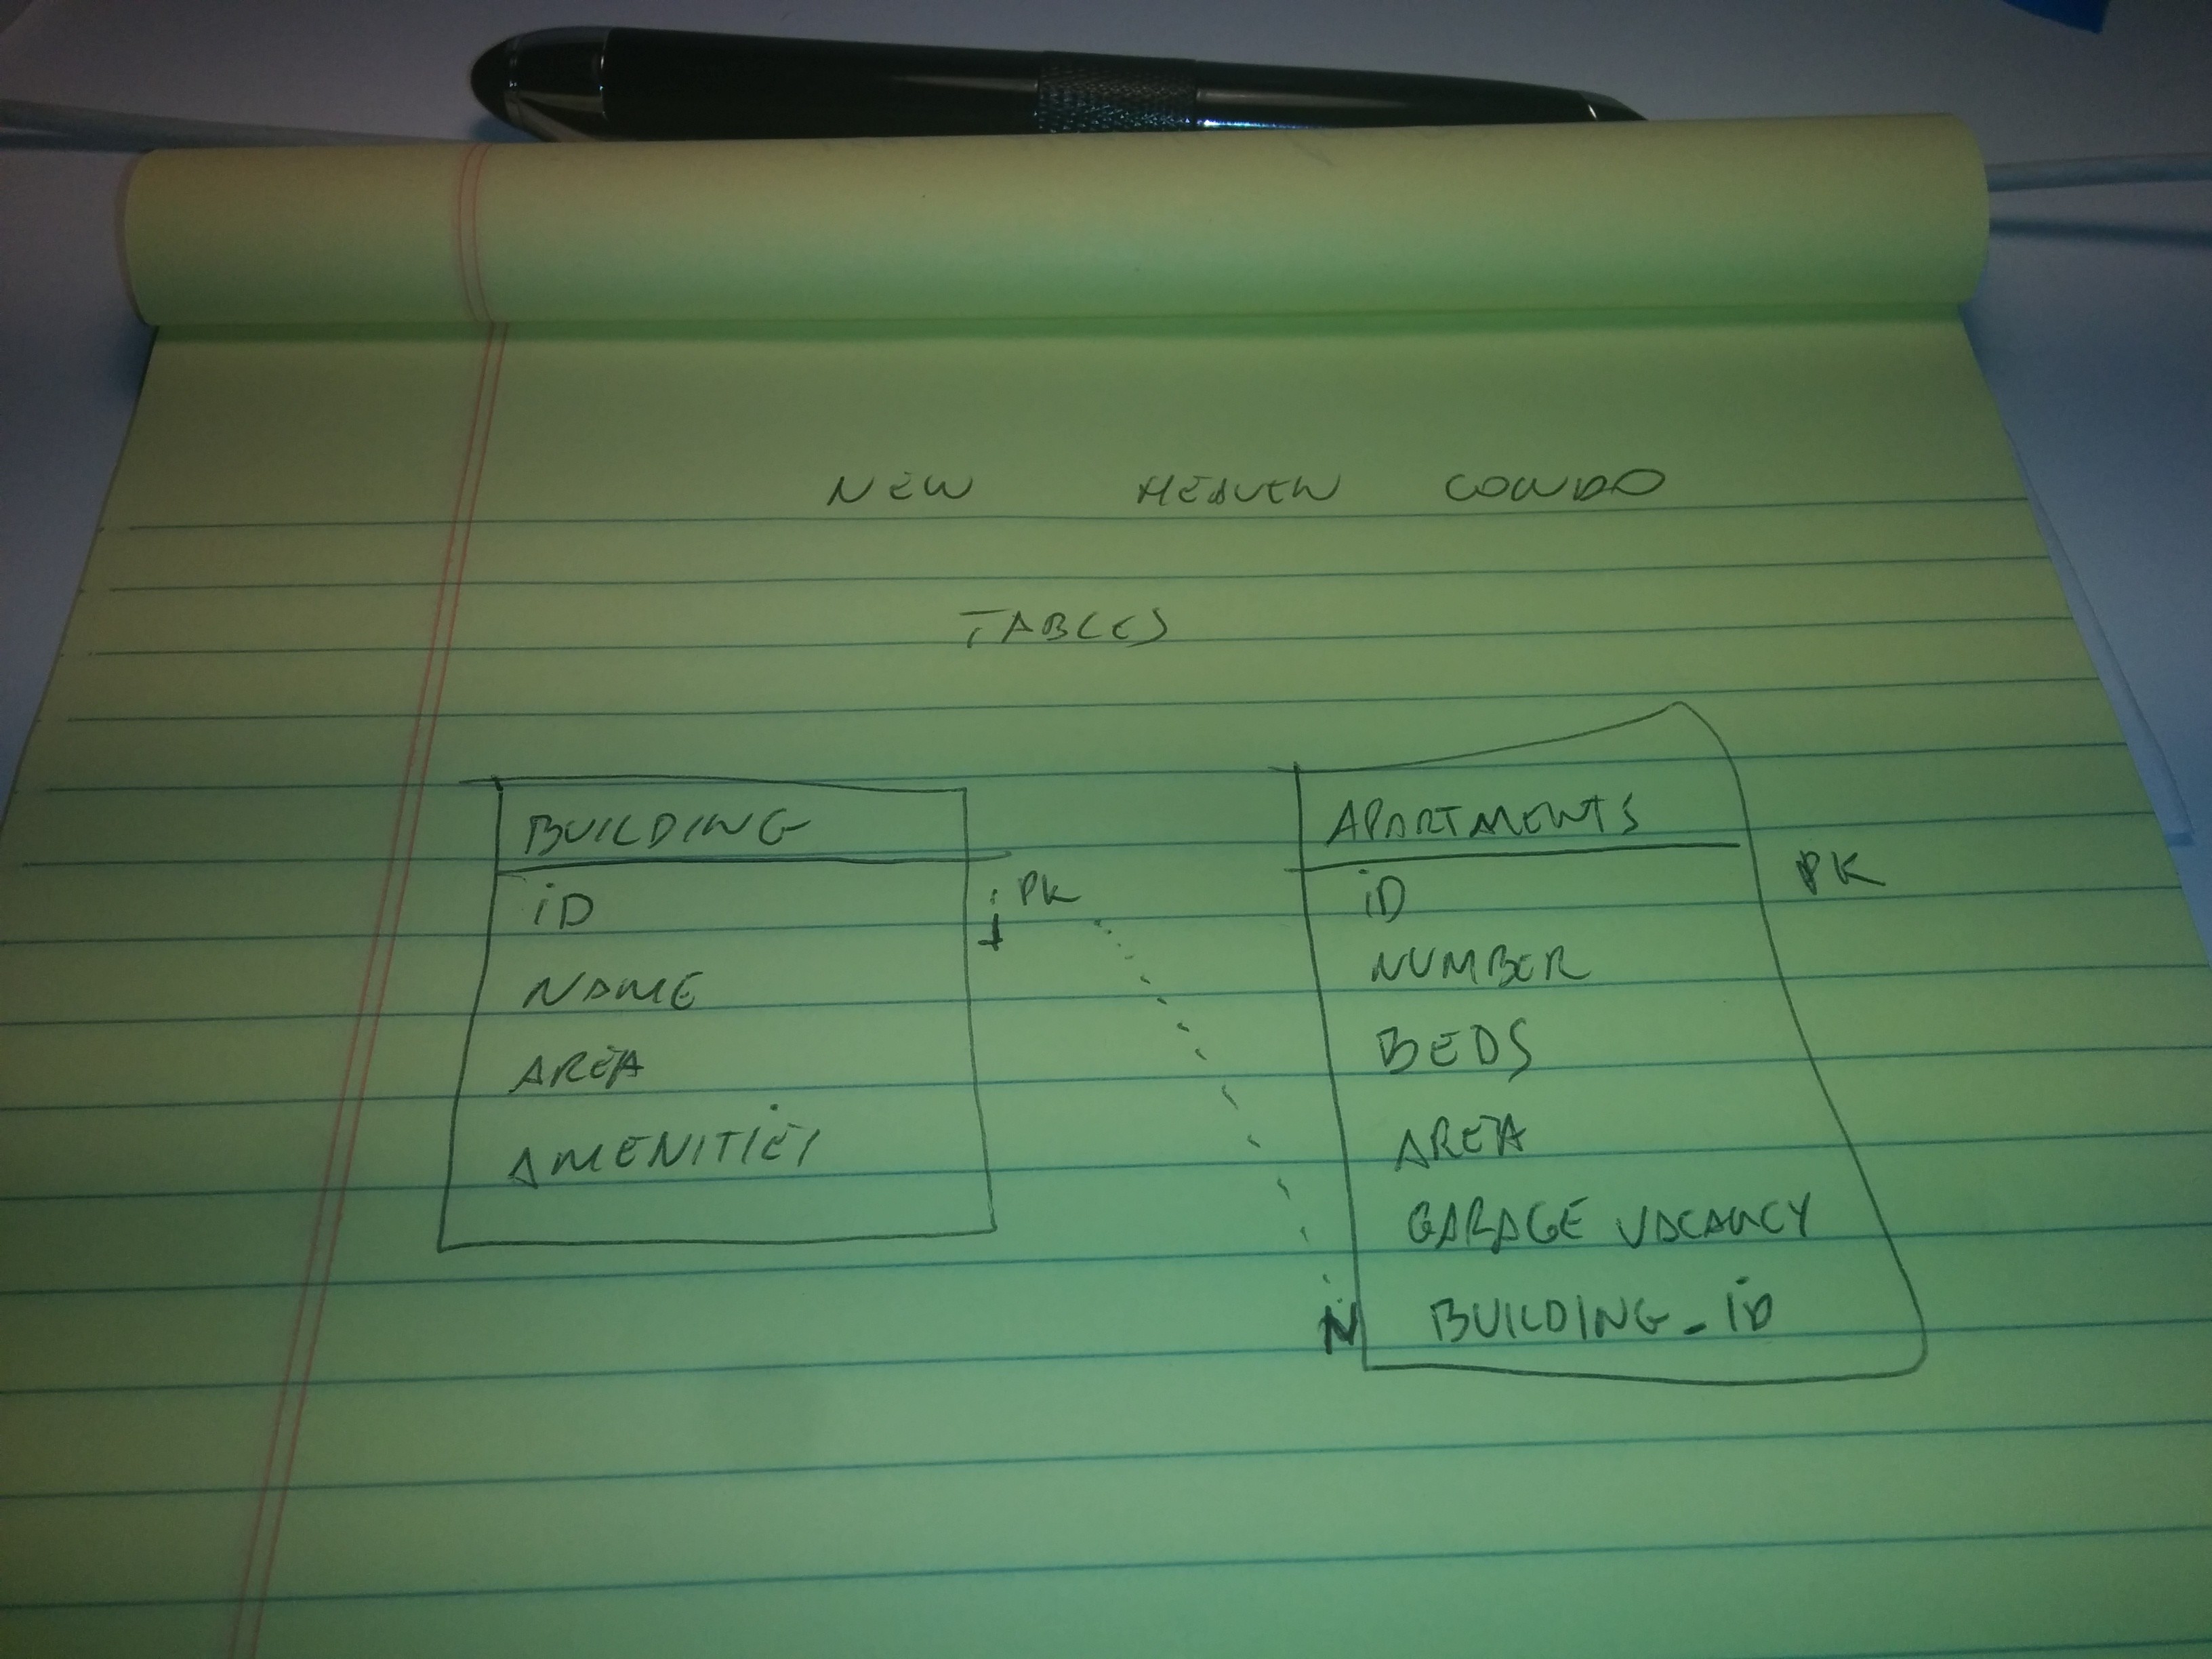 NEW HEAVEN CONDO
TABLES
BUILDING
iD PK
1
NAME
AREA
AMENITIES
APARTMENTS
iD PK
NUMBER
BEDS
AREA
GARAGE VACANCY
N BUILDING_iD